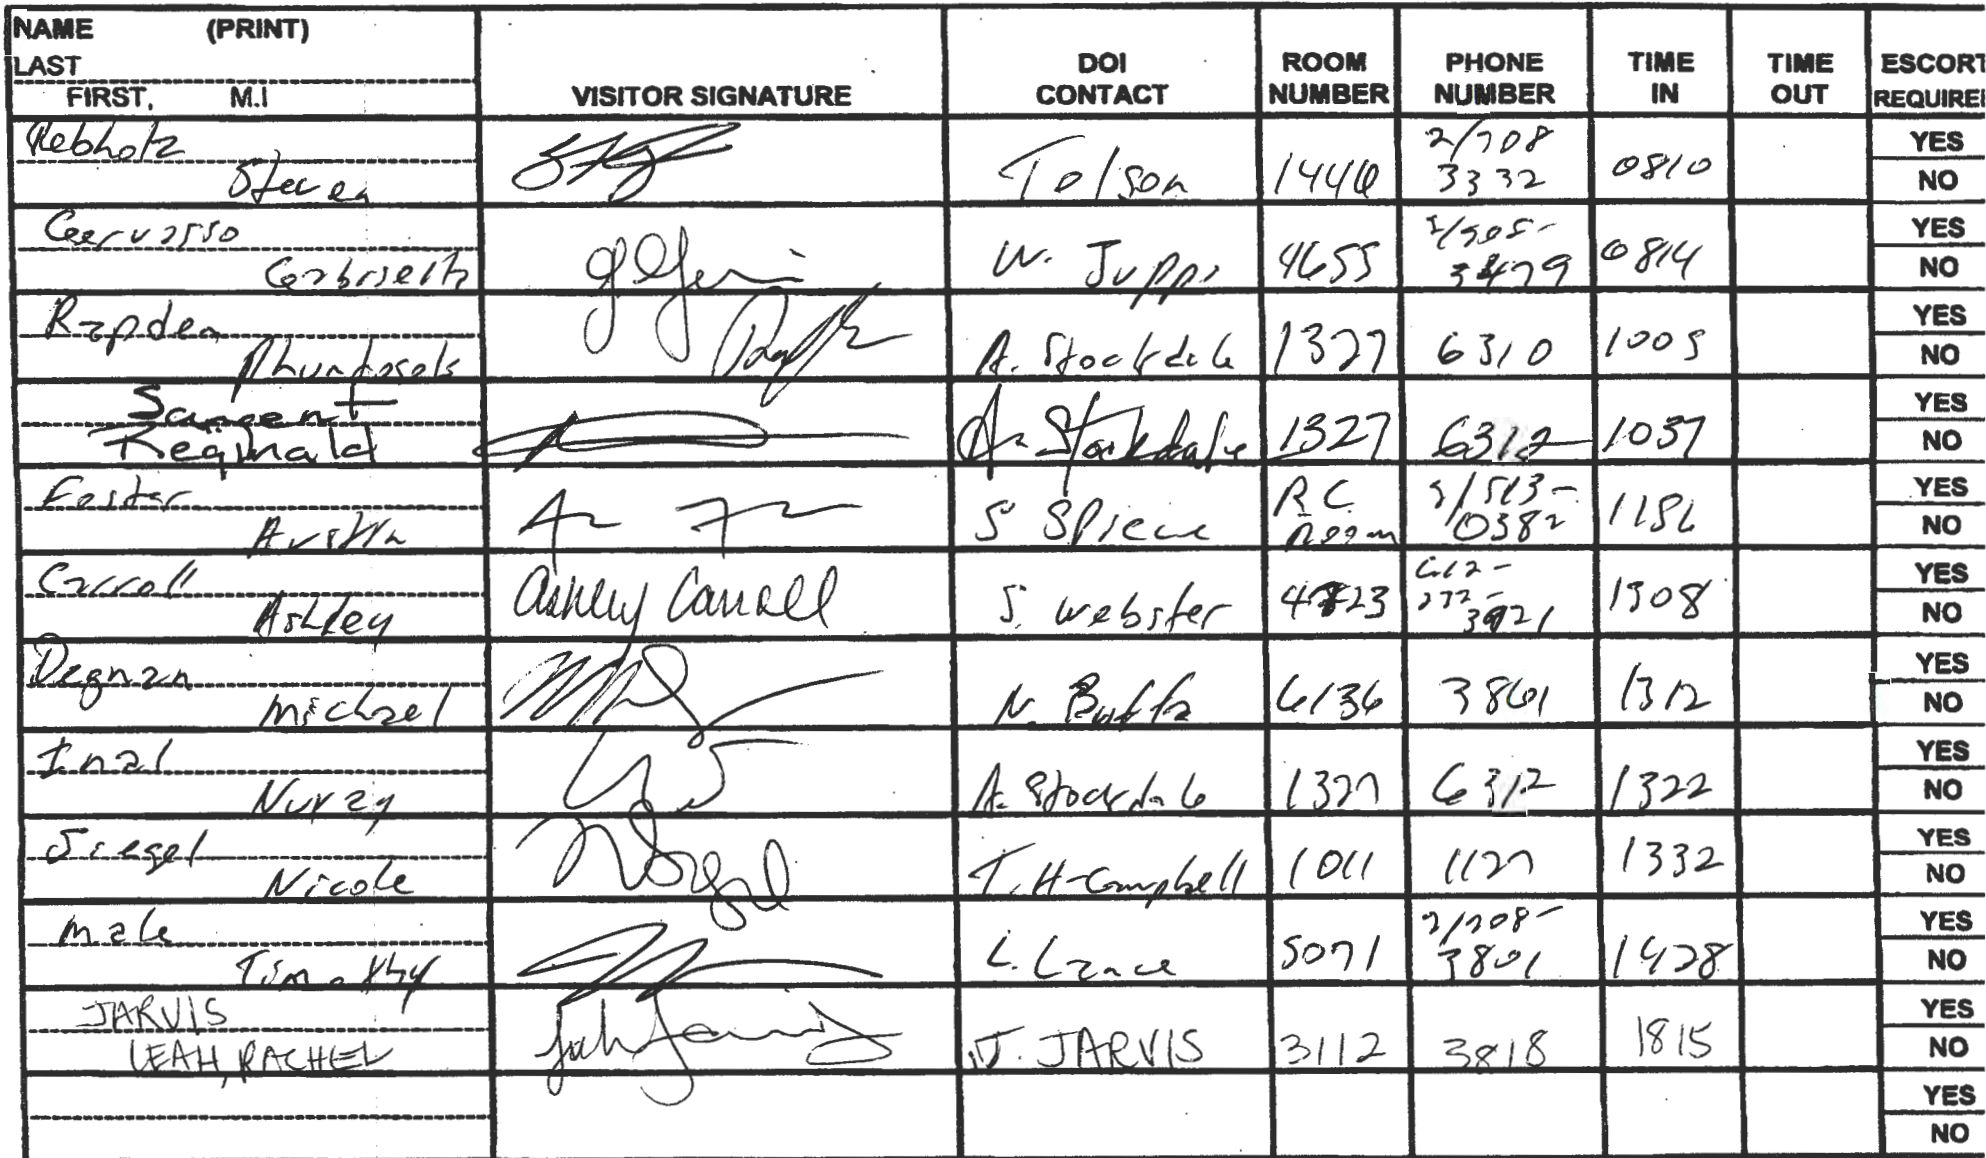 NAME (PRINT)
LAST
FIRST, M.I
VISITOR SIGNATURE
DOI CONTACT
ROOM NUMBER
PHONE NUMBER
TIME IN
TIME OUT
ESCORT REQUIRE
Rebholz
Steven
Tolson 1446 2/708 3332 0810 YES NO
Gervasso
W. Juppi 4655 3479 0814 YES NO
Rapden
A. Stockdale 1327 6310 1005 YES NO
Sargent
Reginald
A. Stockdale 1327 6312 1037 YES NO
Foster
Austin
S Spiece R.C. Room 513-0382 YES NO
Carroll
Ashley
Ashley Carroll
S. Webster 3921 1308 YES NO
Degnan
Michael
N. Buffa 6136 3861 1312 YES NO
Inal
Nuray
A. Stockdale 1327 6312 1322 YES NO
Siegel
Nicole
T. H-Campbell 1011 1127 1332 YES NO
Male
Timothy
5071 2/208- 3801 1428 YES NO
JARVIS
LEAH, RACHEL
J. JARVIS 3112 3818 1815 YES NO
YES NO